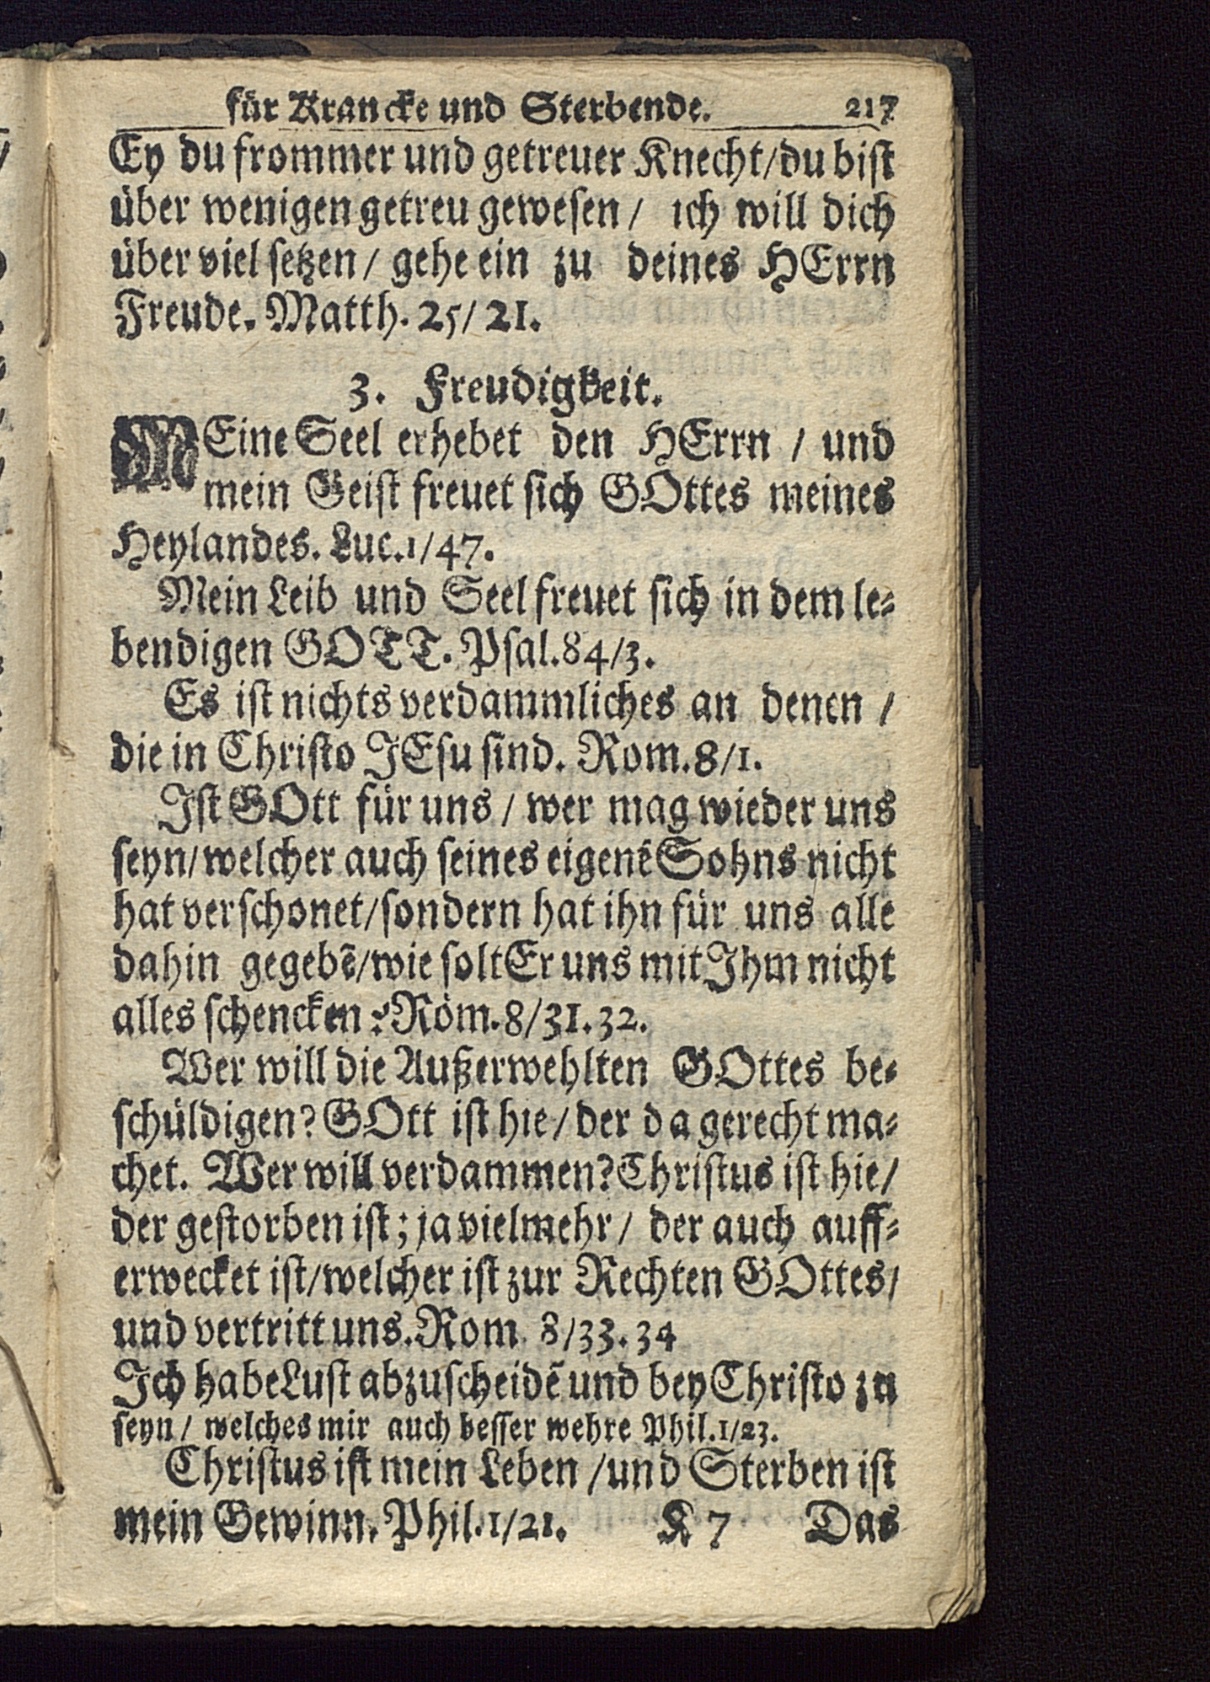 für Krancke und Sterbende. 217
Ey du frommer und getreuer Knecht/du bist
über wenigen getreu gewesen/ ich will dich
über viel setzen/ gehe ein zu deines HErrn
Freude. Matth. 25/21.
3. Freudigkeit.
MEine Seel erhebet den HErrn / und
mein Geist freuet sich GOttes meines
Heylandes. Luc.1/47.
Mein Leib und Seel freuet sich in dem le-
bendigen GOTT. Psal.84/3.
Es ist nichts verdammliches an denen /
die in Christo JEsu sind. Rom.8/1.
Ist GOtt für uns / wer mag wieder uns
seyn/welcher auch seines eigenẽ Sohns nicht
hat verschonet/sondern hat ihn für uns alle
dahin gegebẽ/wie solt Er uns mit Ihm nicht
alles schencken? Röm.8/31.32.
Wer will die Außerwehlten GOttes be-
schüldigen? GOtt ist hie/der da gerecht ma-
chet. Wer will verdammen? Christus ist hie/
der gestorben ist; ja vielmehr/ der auch auff-
erwecket ist/welcher ist zur Rechten GOttes/
und vertritt uns. Rom 8/33.34
Ich habe Lust abzuscheidẽ und bey Christo zu
seyn/ welches mir auch besser wehre Phil.1/23.
Christus ist mein Leben /und Sterben ist
mein Gewinn. Phil.1/21. K 7 Das